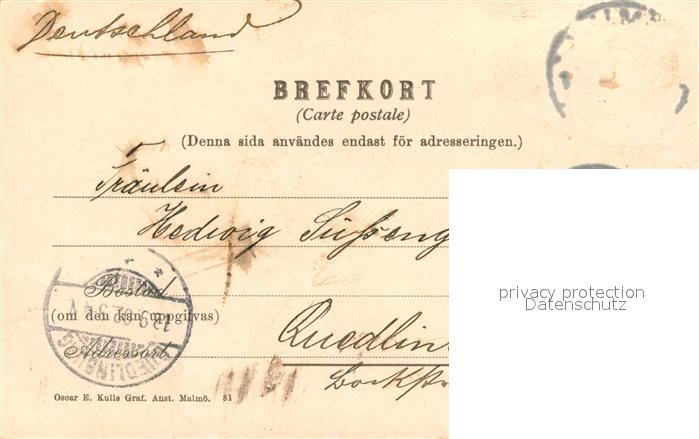 Deutschland
BREFKORT
(Carte postale)
(Denna sida användes endast för adresseringen.)
Fräulein
Hedwig Süsseng
privacy protection
Datenschutz
Bostad
(om den kan uppgifvas)
Quedlin
Adressort
QUEDLINBURG
Oscar E. Kulls Graf. Anst. Malmö. 81